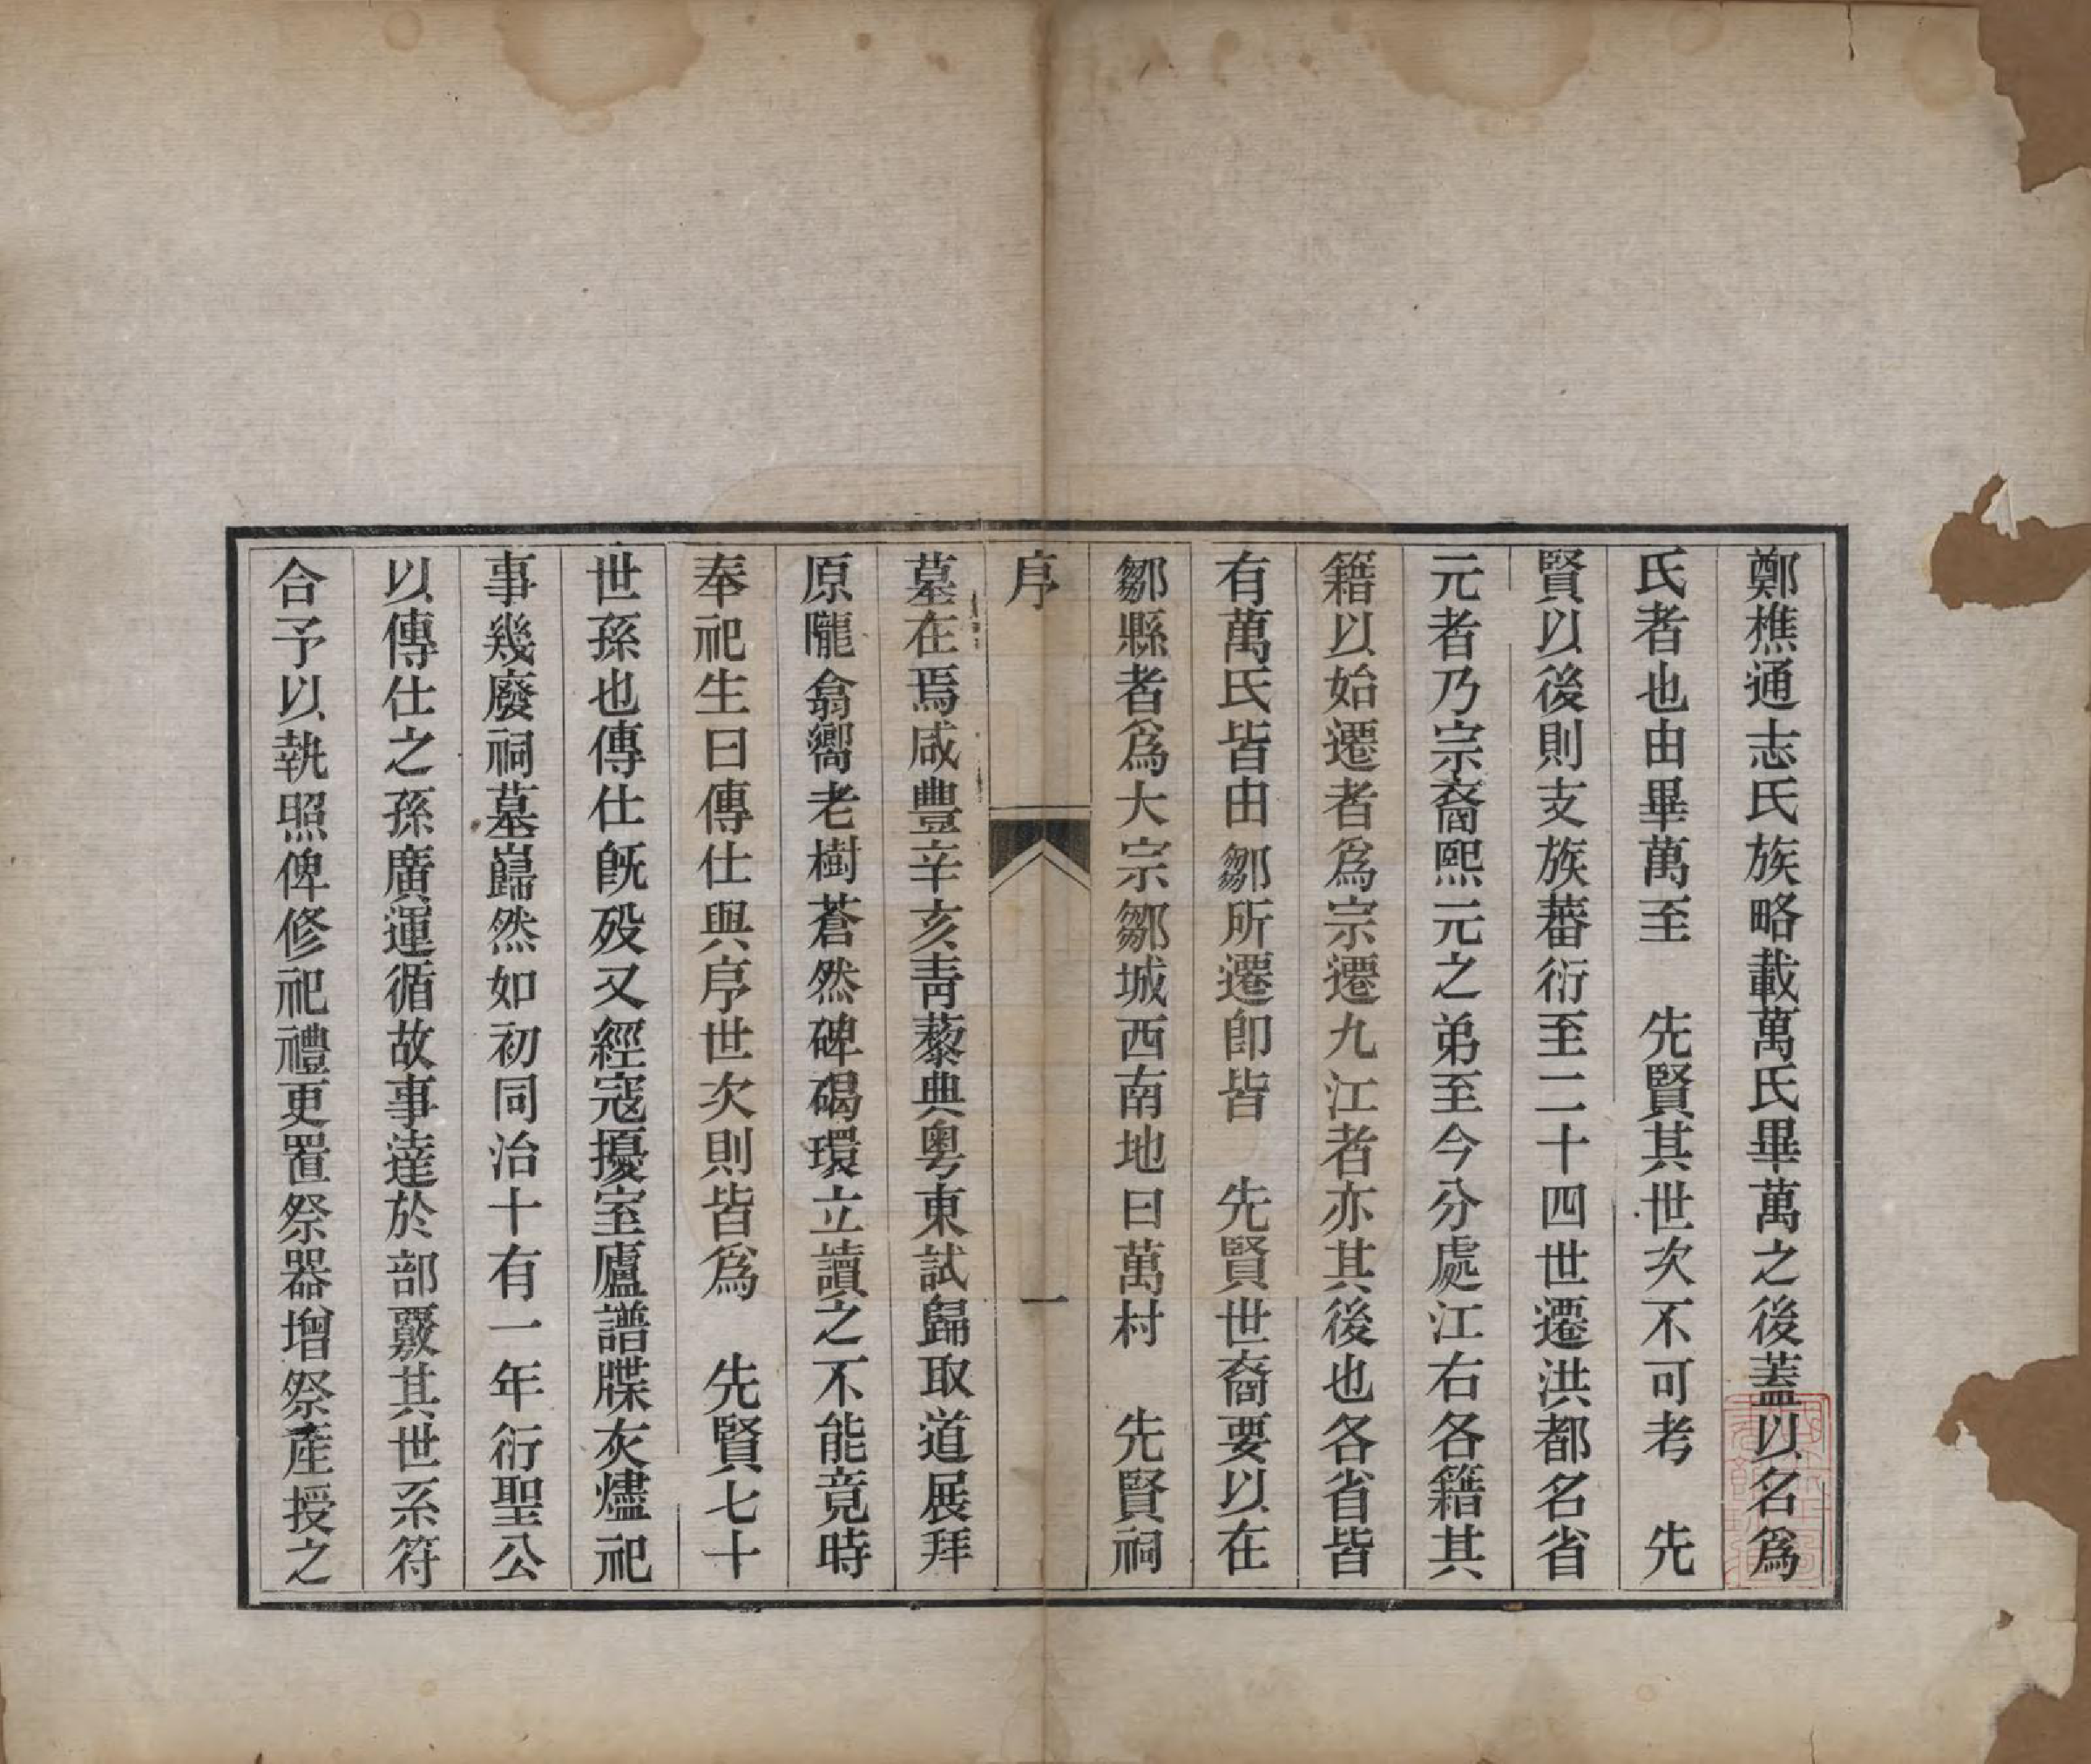 鄭樵通志氏族略載萬氏畢萬之後蓋以名爲
氏者也由畢萬至　先賢其世次不可考　先
賢以後則支族蕃衍至二十四世遷洪都名省
元者乃宗裔熙元之弟至今分處江右各籍其
籍以始遷者爲宗遷九江者亦其後也各省皆
有萬氏皆由鄒所遷卽皆　先賢世裔要以在
鄒縣者爲大宗鄒城西南地曰萬村　先賢祠
序　一
墓在焉咸豐辛亥靑藜典粵東試歸取道展拜
原隴翕嚮老樹蒼然碑碣環立讀之不能竟時
奉祀生曰傳仕與序世次則皆爲　先賢七十
世孫也傳仕旣歿又經寇擾室廬譜牒灰燼祀
事幾廢祠墓巋然如初同治十有一年衍聖公
以傳仕之孫廣運循故事達於部覈其世系符
合予以執照俾修祀禮更置祭器增祭產授之